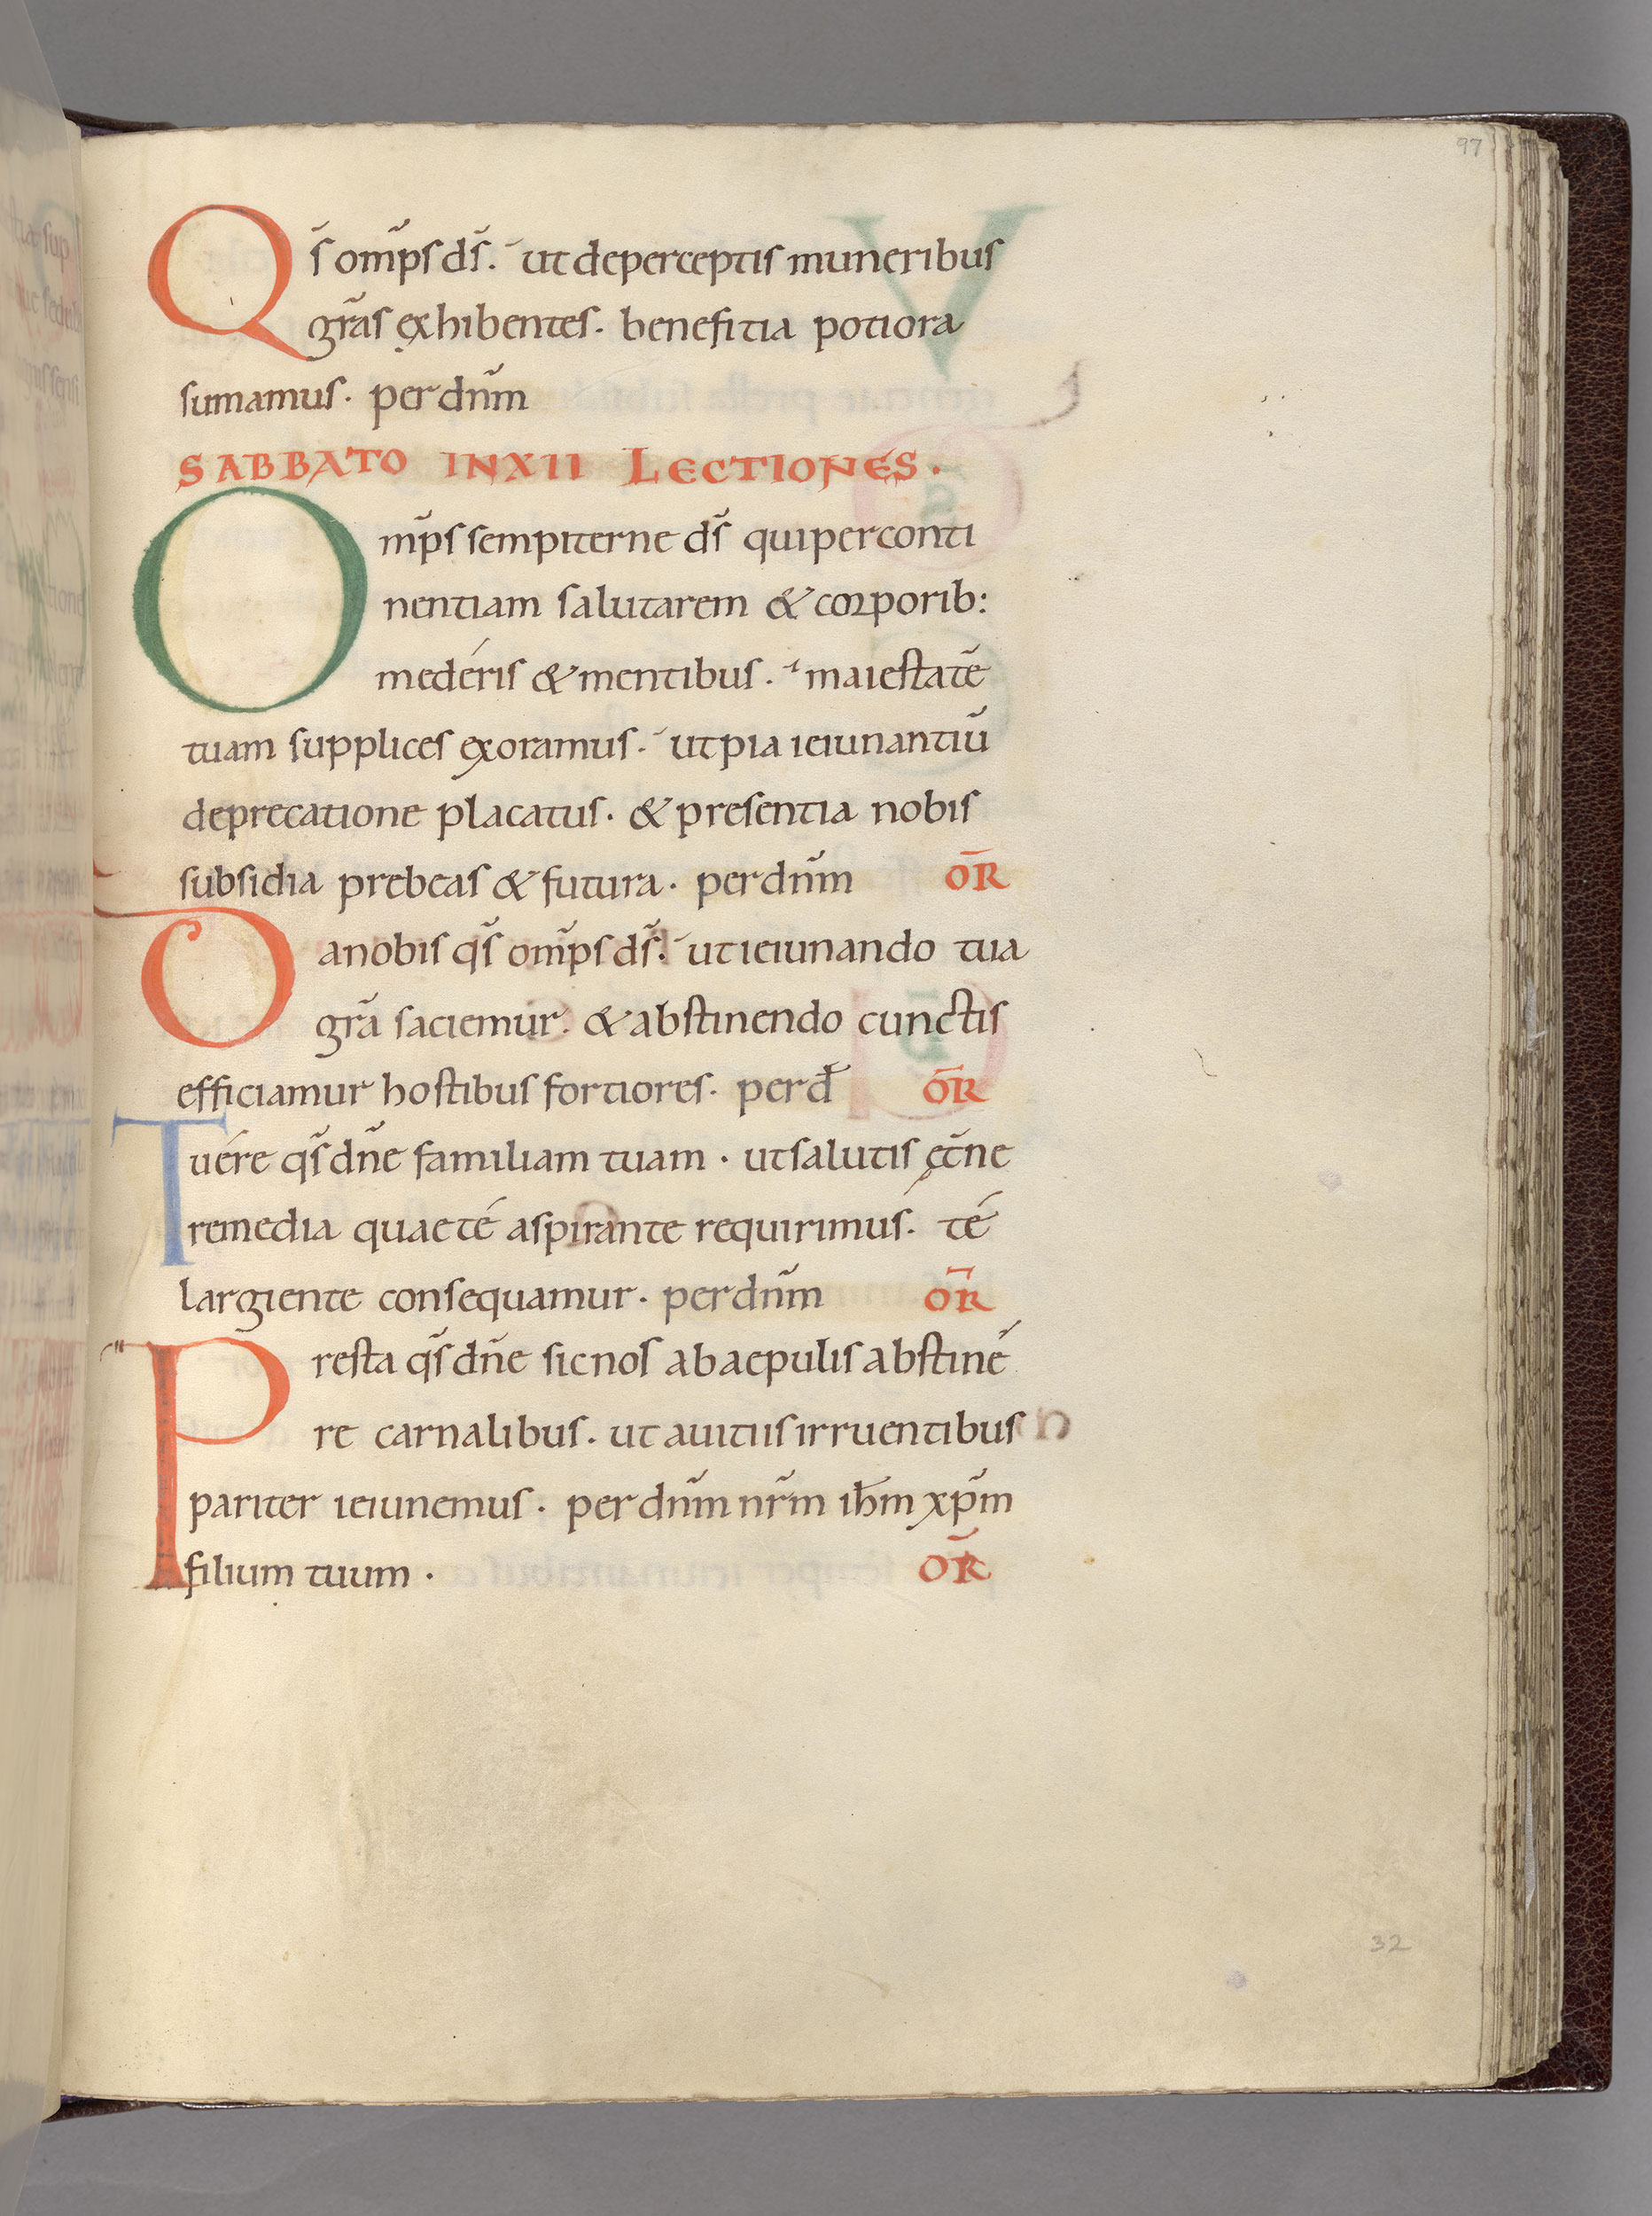 97
Qs̄ om̄ps ds̄. ut deperceptis muneribus
grās ęxhibentes. benefitia potiora
sumamus. per dnm̄
SABBATO IN XII LECTIONES.
Om̄ps sempiterne ds̄ qui per conti
nentiam salutarem & corporib:
medéris & mentibus. maiestatē
tuam supplices exoramus. ut pia ieiunantiū
deprecatione placatus. & presentia nobis
subsidia prebeas & futura. per dnm̄ OR̄
Da nobis qs̄ om̄ps ds̄. ut ieiunando tua
grā saciemur. & abstinendo cunctis
efficiamur hostibus fortiores. per d̄ OR̄
Tuére qs̄ dn̄e familiam tuam. ut salutis ęt̄ne
remedia quae té aspirante requirimus. té
largiente consequamur. per dnm̄ OR̄
Presta qs̄ dn̄e sic nos ab aepulis abstiné
re carnalibus. ut a uitiis irruentibus
pariter ieiunemus. per dnm̄ nr̄m ih̄m xp̄m
filium tuum. OR̄
32